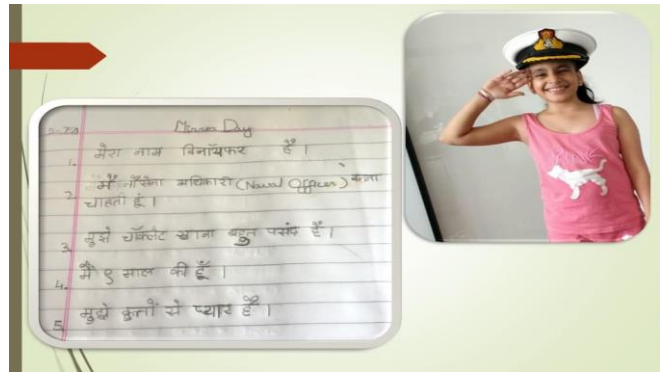 Mirror Day
1. मेरा नाम विनॉयफर है ।
2. मैं नौसेना अधिकारी (Naval Officer) बनना
चाहती हूं ।
3. मुझे चॉकलेट खाना बहुत पसंद हैं ।
4. मैं ९ साल की हूँ ।
5. मुझे कुत्तों से प्यार हैं ।
PINK